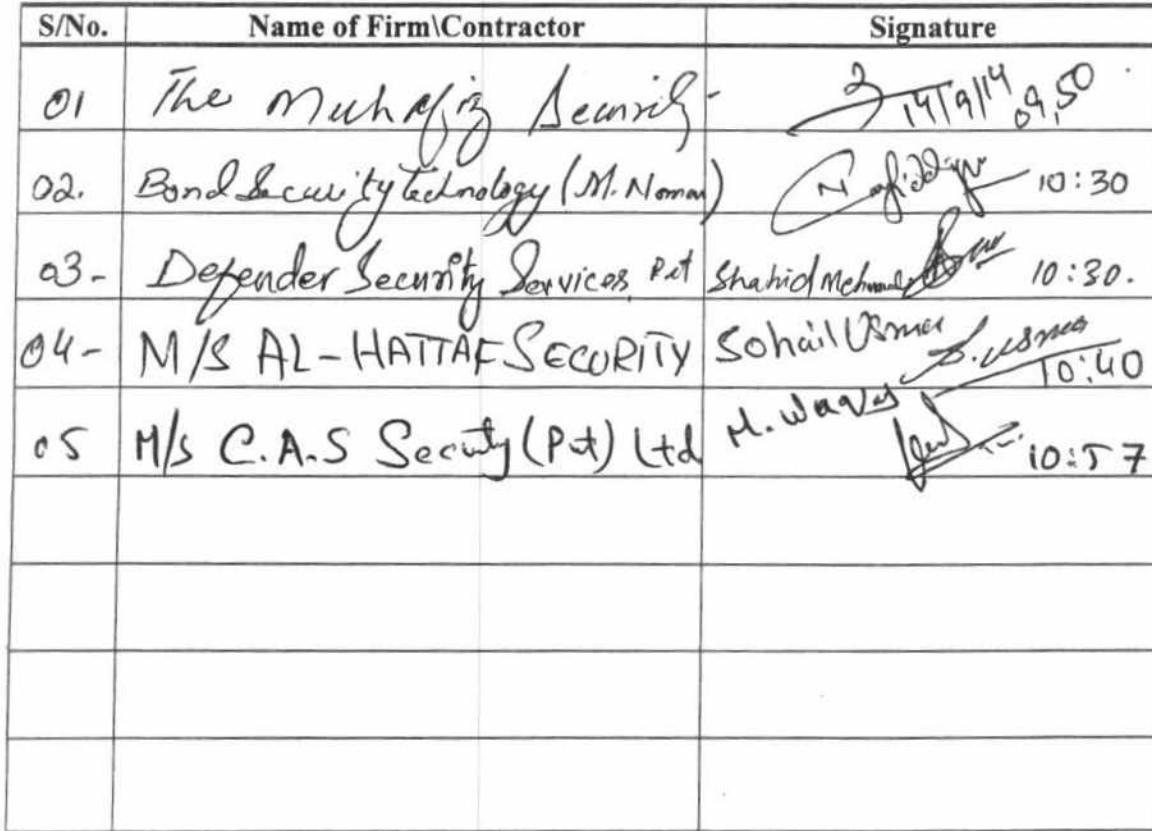 S/No. Name of Firm\Contractor Signature
01 The Muhafiz Security 14/9/14 09,50
02. Bond Security Technology (M. Noman) 10:30
03- Defender Security Services Pvt Shahid Mehmood 10:30.
04- M/S AL-HATTAF SECURITY Sohail Usman S. Usman 10:40
05 M/s C.A.S Security (Pvt) Ltd M. Waqas 10:57